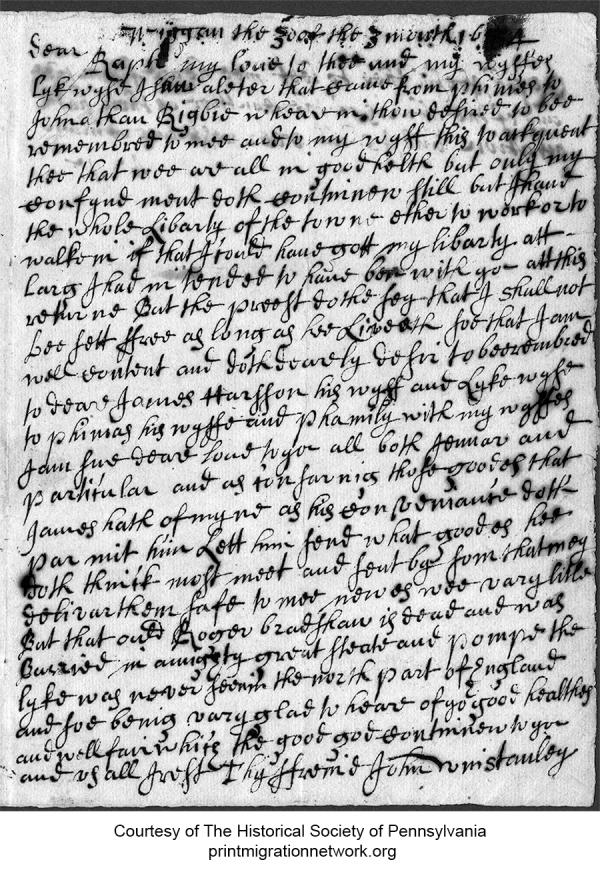 Wiggan the 30 of the 3 month 16 4
dear
Raph my love to thee and my wyffes
lykwyse I saw a leter that came from phinies to
Johnathan Rigbie whearin thou desired to bee
remembred to mee and to my wyff this to acquent
thee that wee are all in good helth but only my
confynd ment doth continnew still but I have
the whole Libarty of the towne ether to work or to
walk in if that I could have gott my libarty att
Larg I had intended to have ben with yor att this
returne But the preest dothe sey that I shall not
bee sett ffree as long as hee Liveeth soe that I am
well content and doth dearly desir to bee rembred
to deare James Harsson his wyff and Lykwyse
to phinias his wysse and phamily with my wyffes
I am sure deare love to yor all both Jennar and
particular and as consarnig those goodes that
James hath of myne as his Conveniance doth
parmit him Lett him send what goodes hee
doth think most meet and sent by som that mey
delivar them safe to mee newes wee vary litle
But that ould Roger bradshaw is dead and was
Burried in a mighty great steate and pompe the
lyke was never seen in the north part of England
and soe benig vary glad to heare of yor good healthes
and well fair which the good god continnew to yor
and us all I rest Thy ffreind John winstanley
Courtesy of The Historical Society of Pennsylvania
printmigrationnetwork.org